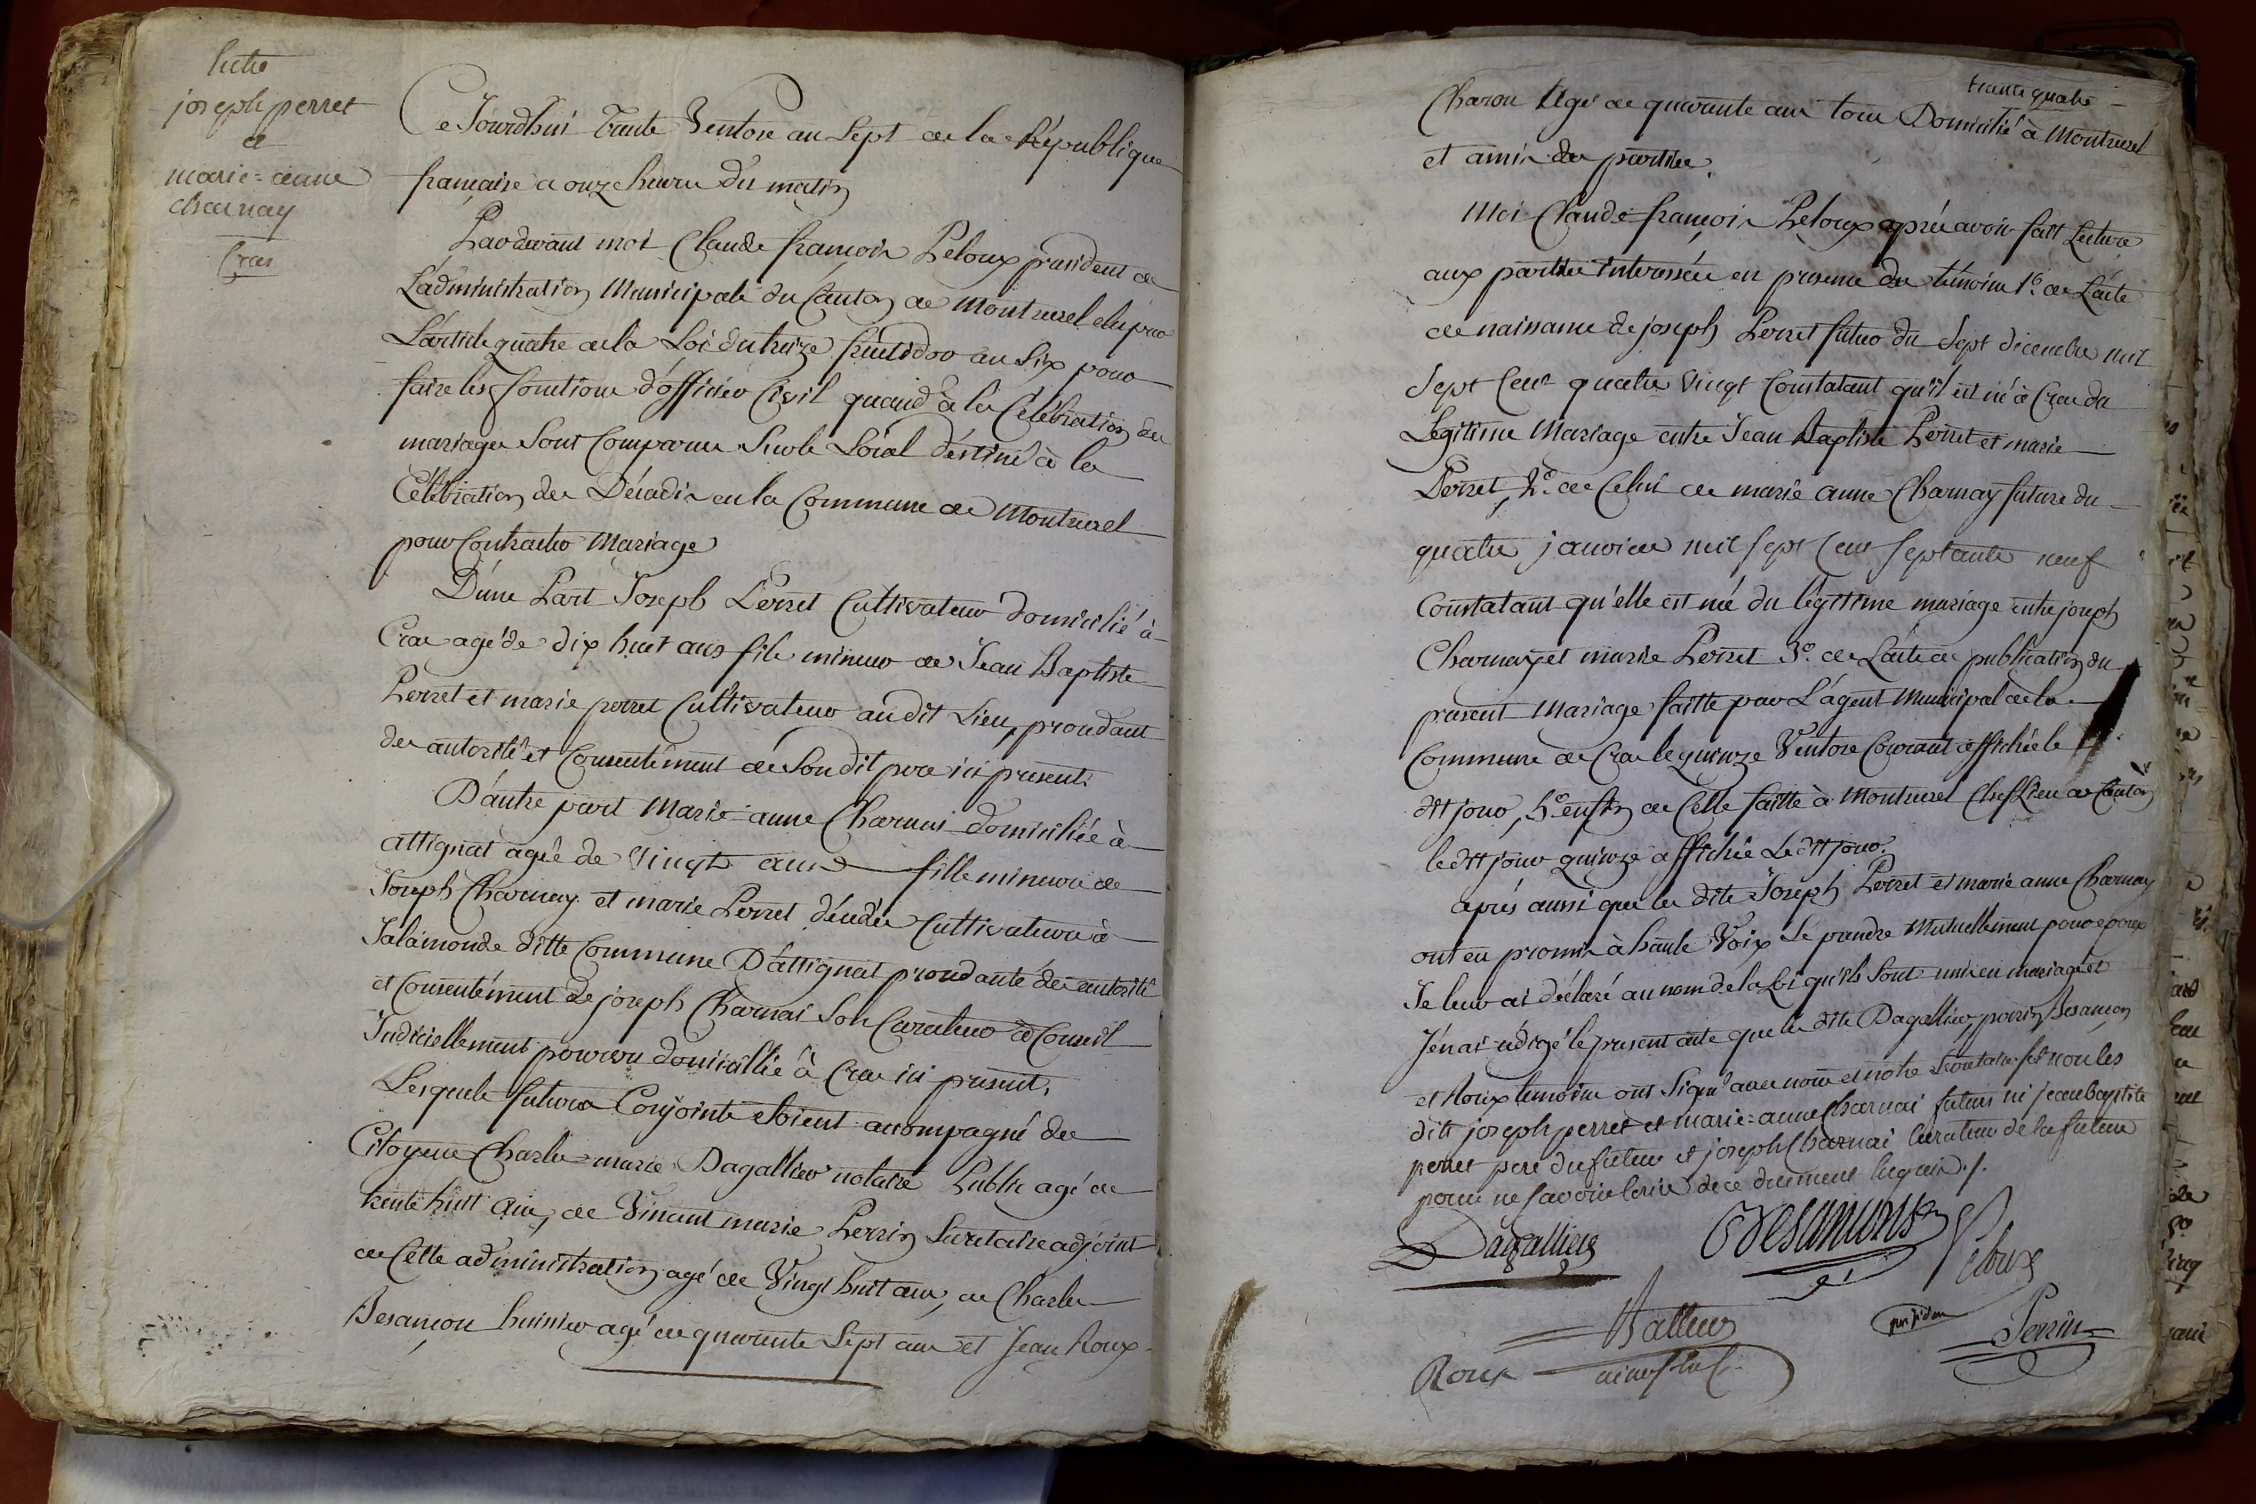 Entre
joseph perret
et
marie=anne
charnay
Cras
Ce Jourdhui Trante Ventose an Sept de la République
francaise a onze heures du matin
Pardevant moi Claude françois Peloux président de
L'administration Municipale du Canton de Montrevel elu par
L'article quatre de la Loi du treize fructidor an Six pour
faire les fonctions d'officier Civil quand à la Célébration des
mariages Sont Comparus Sur le Local destiné à la
Célébration des Décadis en la Commune de Montrevel
pour Contracter Mariage
D'une Part Joseph Perret Cultivateur domicilié à
Cras agé de dix huit ans fils mineur de Jean Baptiste
Perret et marie perret Cultivateur au dit Lieu, procédant
des autorité et Consentement de Son dit pere ici présent.
D'autre part Marie=anne Charnai domiciliée à
attignat agée de vingt ans fille mineure de
Joseph Charnay et marie Perret décédée Cultivateurs à
Salamonde ditte Commune D'attignat procedante de autorité
et Consentement de joseph Charnai Son Curateur et Conseil
Judiciellement pourvu domicillié à Cras ici présent,
Lesquels futurs Conjoints Etoient accompagné des
Citoyens Charles=marie Dagallier notaire Public agé de
trente huit ans, de Vincent marie Perrin Secretaire adjoint
de Cette administration agé de Vingt huit ans, de Charles
Besançon huissier agé de quarante Sept ans et Jean Roux
trante quatre
Charon Agé de quarante ans tous Domicilié à Montrevel
et amis des parties.
Moi Claude françois Peloux aprés avoir fait Lecture
aux parties interessées en presence des témoins 1º. de L'acte
de naissance de joseph Perret futur du Sept décembre mil
Sept Cent quatre vingt Constatant qu'il est né à Cras du
Légitime Mariage entre Jean Baptiste Perret et marie
Perret, 2º. de Celui de marie anne Charnay future du
quatre janvier mil sept Cent septante neuf
Constatant qu'elle est née du légitime mariage entre joseph
Charnay et marie Perret 3º. de L'acte de publication du
présent Mariage faitte par L'agent Municipal de la
Commune de Cras le quinze Ventose Courant affichée le
dit jour, 5º enfin de Celle faitte à Montrevel Chef Lieu de Canton
le dit jour quinze affichée Le dit jour.
aprés aussi que les dits Joseph Perret et marie anne Charnay
ont eu promis à haute Voix Se prendre Mutuellement pour epoux
Je leur ai déclaré au nom de la Loi qu'ils Sont unis en mariage et
J'en ai rédigé le present acte que les dits Dagallier, perrin, Besançon
et Roux temoins ont Signé avec nous et notre Secretaire et non les
dits joseph perret et marie=anne Charnai futurs ni jean baptiste
perret pere du futur et joseph Charnai Curateur de la future
pour ne savoir écrire de ce duement requis ./.
Dagallier Peloux
président Perrin
Roux